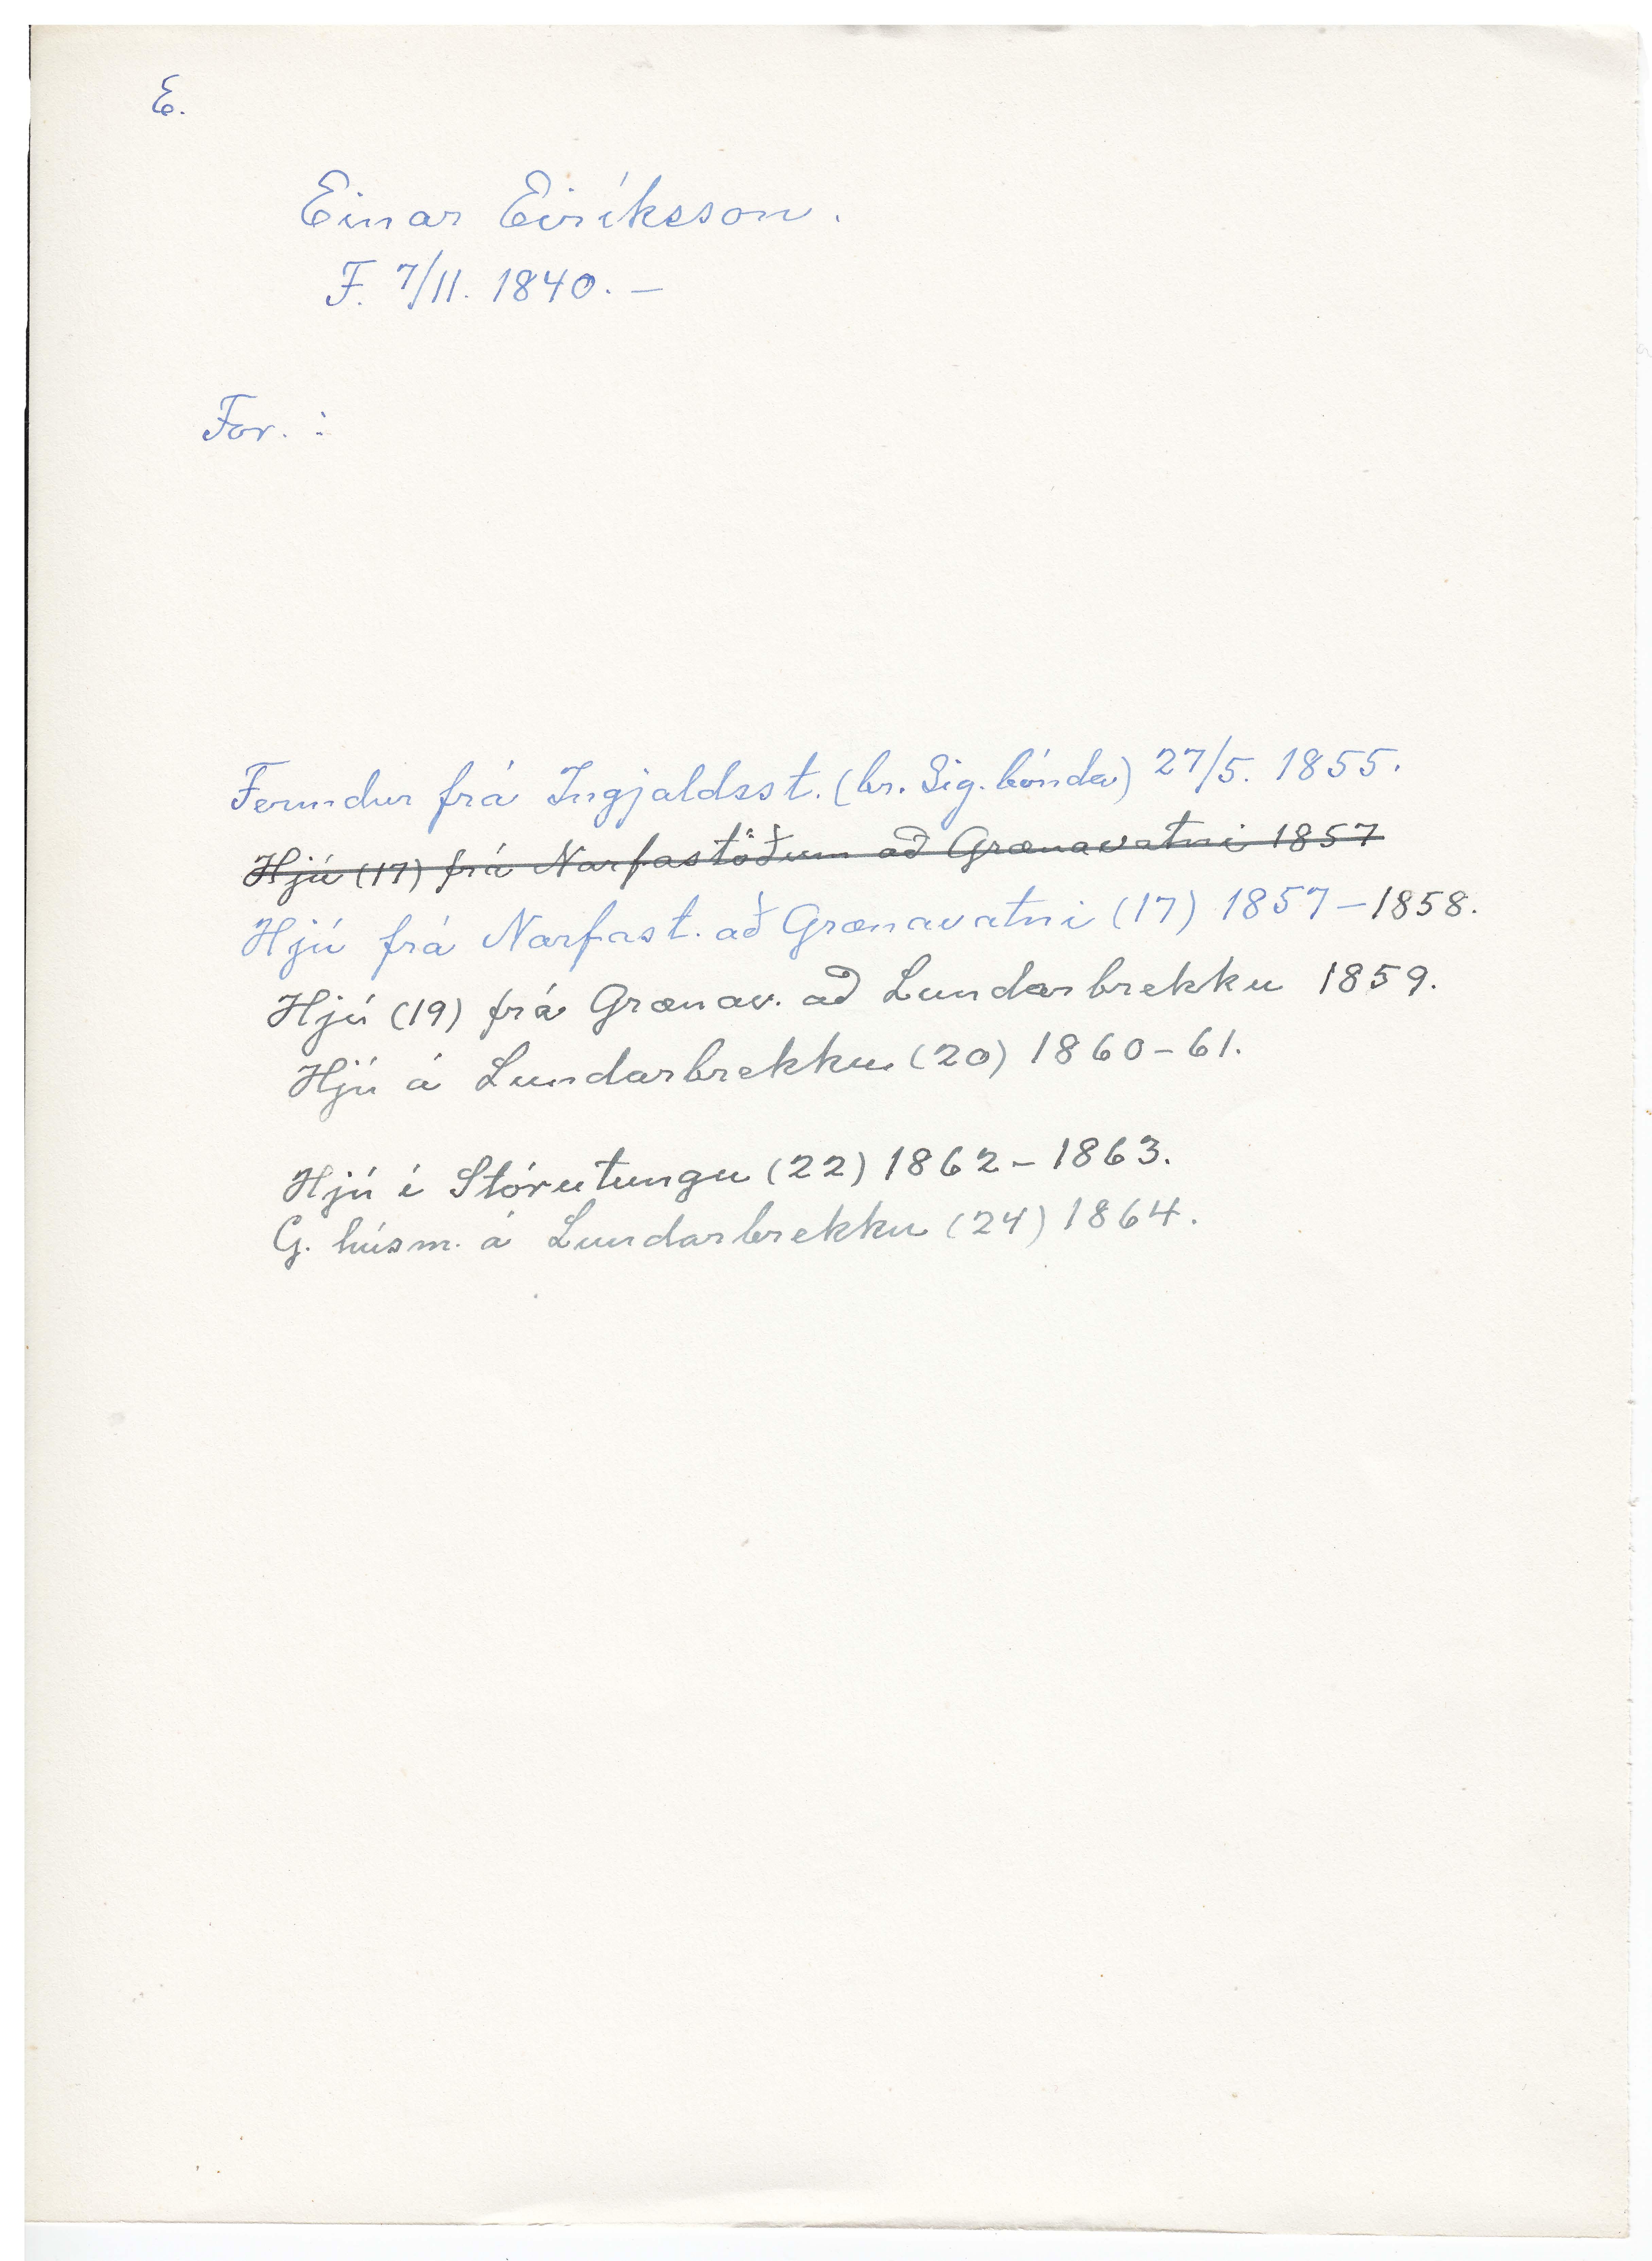 E.
Einar Eiríksson.
F. 7/11. 1840. –
For. :
Fermdur frá Ingjaldsst. (br. Sig. bónda) 27/5. 1855.
Hjú (17) frá Narfastöðum að Grænavatni 1857
Hjú frá Narfast. að Grænavatni (17) 1857 – 1858.
Hjú (19) frá Grænav. að Lundarbrekku 1859.
Hjú á Lundarbrekku (20) 1860 – 61.
Hjú í Stórutungu (22) 1862 – 1863.
G. húsm. á Lundarbrekku (24) 1864.